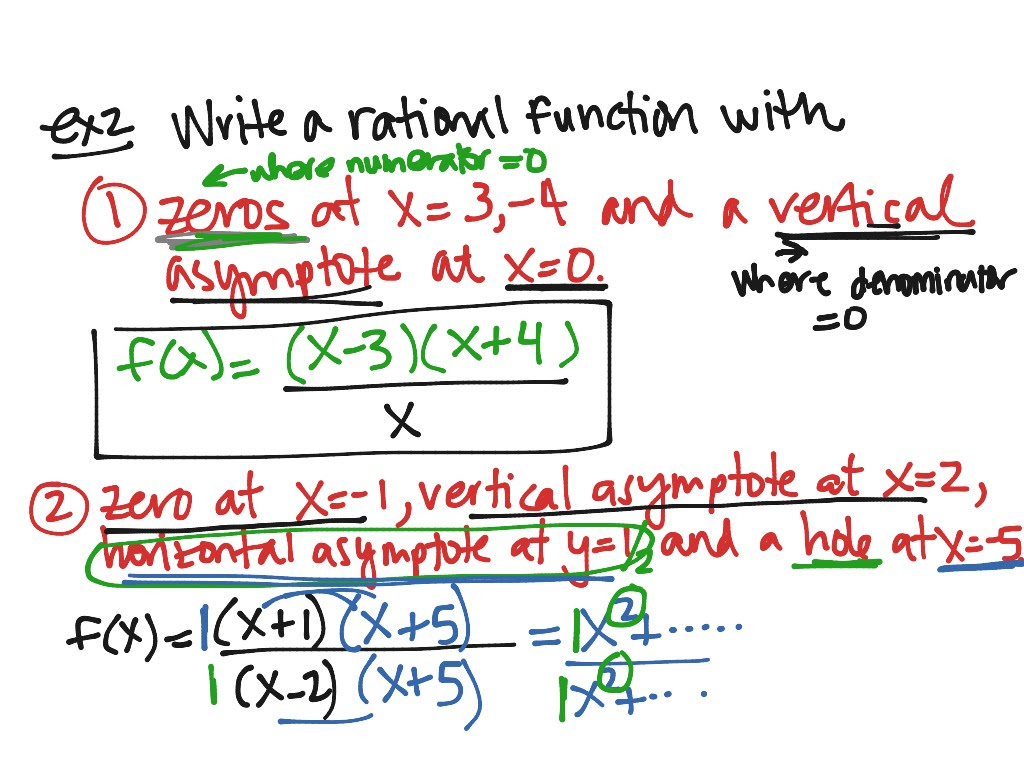 ex2 Write a rational function with
← where numerator = 0
① zeros at x = 3, -4 and a vertical
asymptote at x = 0.
→
where denominator
= 0
f(x) = (x-3)(x+4)
x
② zero at x = -1, vertical asymptote at x = 2,
horizontal asymptote at y = 1, and a hole at x = -5
f(x) = 1(x+1)(x+5) = 1x²+ ......
1(x-2)(x+5) 1x²+ ... .